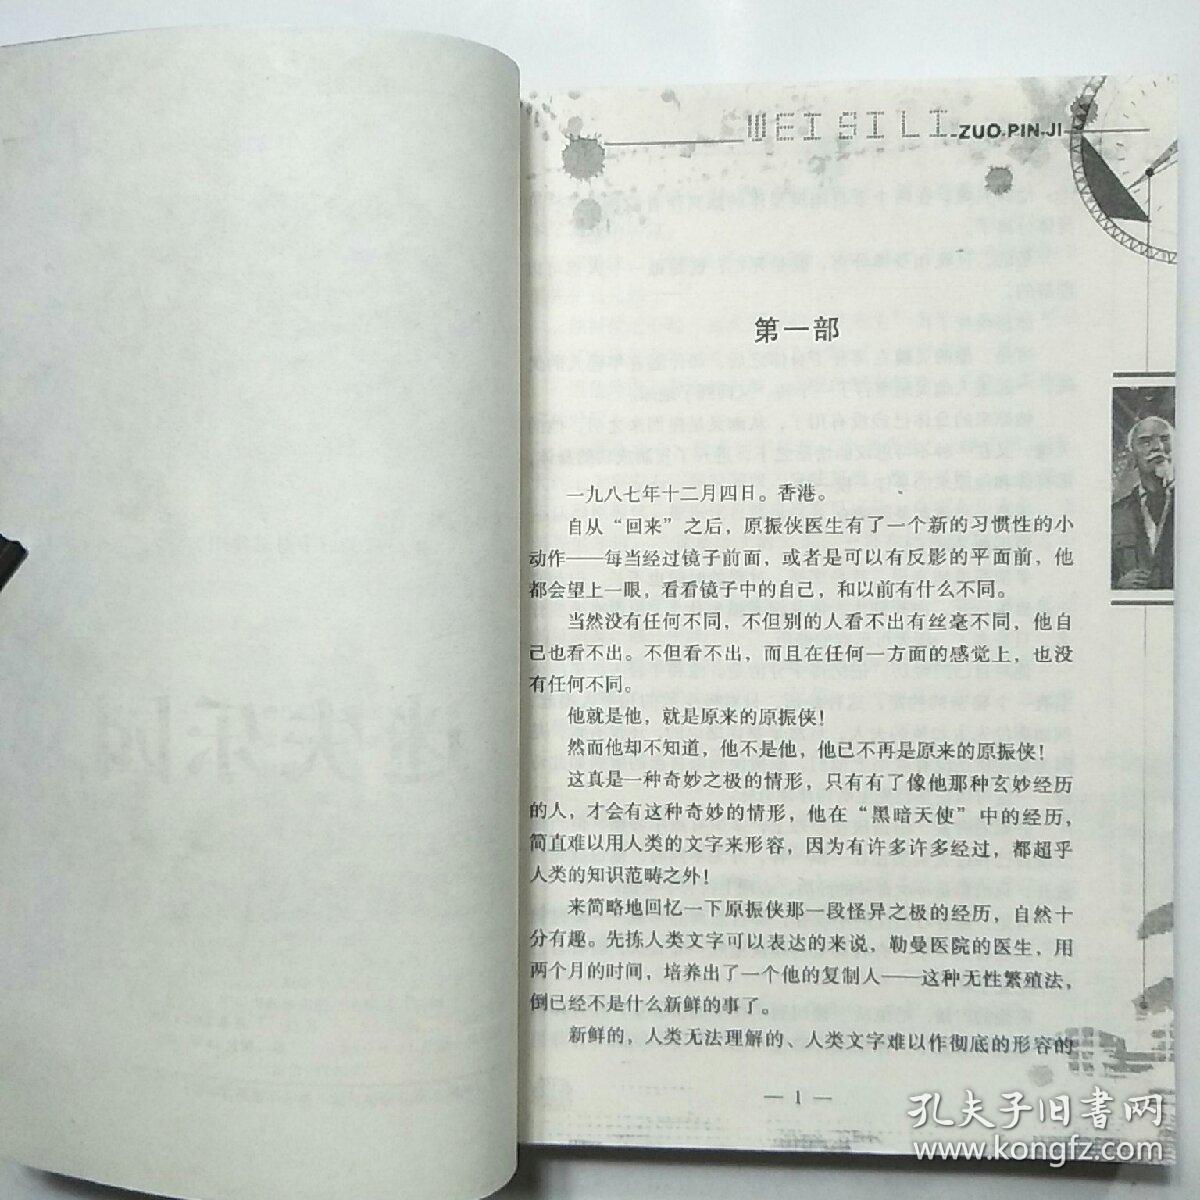 WEISILI ZUO PIN JI
第一部
一九八七年十二月四日。香港。
自从“回来”之后，原振侠医生有了一个新的习惯性的小
动作——每当经过镜子前面，或者是可以有反影的平面前，他
都会望上一眼，看看镜子中的自己，和以前有什么不同。
当然没有任何不同，不但别的人看不出有丝毫不同，他自
己也看不出。不但看不出，而且在任何一方面的感觉上，也没
有任何不同。
他就是他，就是原来的原振侠！
然而他却不知道，他不是他，他已不再是原来的原振侠！
这真是一种奇妙之极的情形，只有有了像他那种玄妙经历
的人，才会有这种奇妙的情形，他在“黑暗天使”中的经历，
简直难以用人类的文字来形容，因为有许多许多经过，都超乎
人类的知识范畴之外！
来简略地回忆一下原振侠那一段怪异之极的经历，自然十
分有趣。先拣人类文字可以表达的来说，勒曼医院的医生，用
两个月的时间，培养出了一个他的复制人——这种无性繁殖法，
倒已经不是什么新鲜的事了。
新鲜的，人类无法理解的、人类文字难以作彻底的形容的
— 1 —
孔夫子旧书网
www.kongfz.com